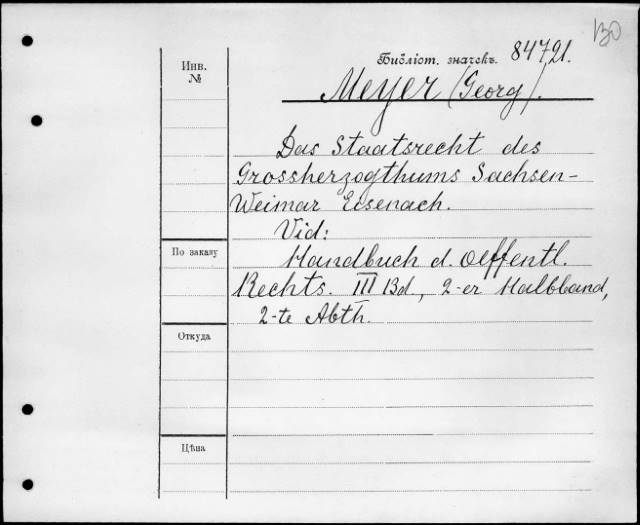 130
Библіот. значекъ. 84721.
Инв.
№
Meyer (Georg).
Das Staatsrecht des
Grossherzogthums Sachsen-
Weimar Eisenach.
Vid:
Handbuch d. Oeffentl.
Rechts. III Bd., 2-er Halbband,
2-te Abth.
По заказу
Откуда
Цѣна